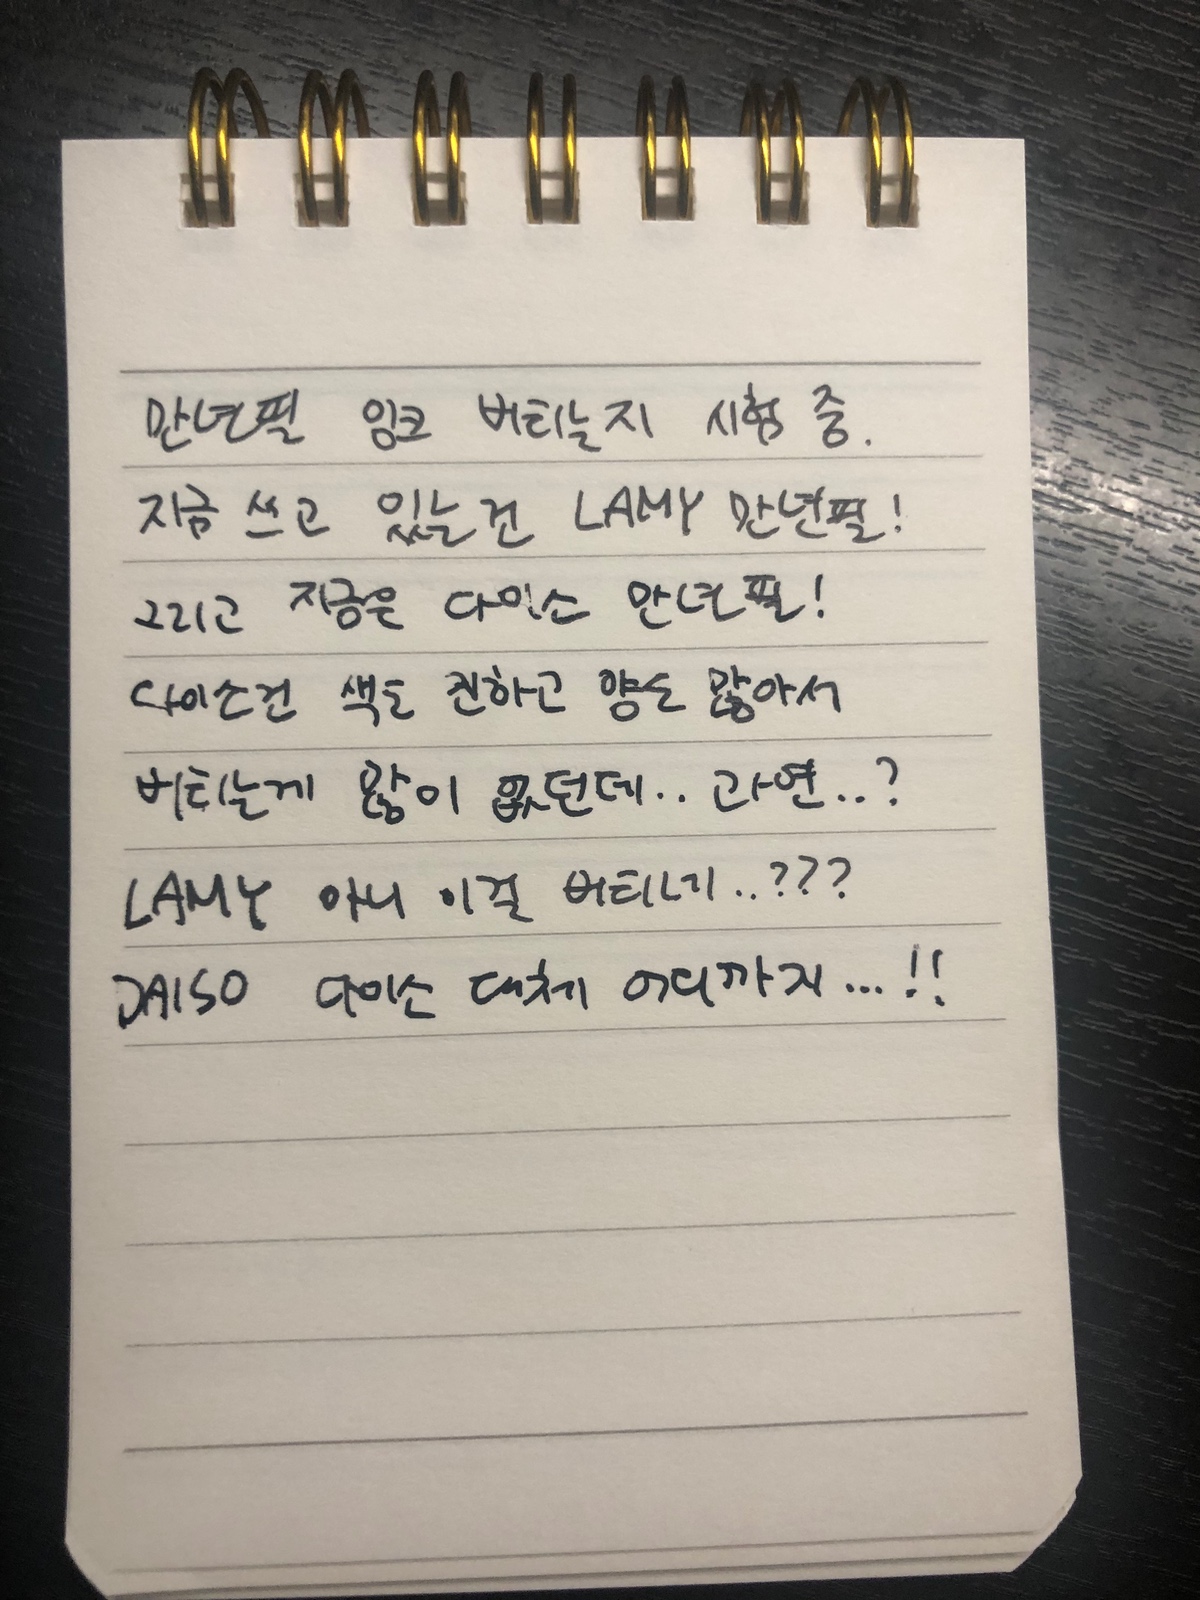 만년필 잉크 버티는지 시험 중.
지금 쓰고 있는건 LAMY 만년필!
그리고 지금은 다이소 만년필!
다이소건 색도 진하고 양도 많아서
버티는게 많이 없던데.. 과연..?
LAMY 아니 이걸 버티네..???
DAISO 다이소 대체 어디까지...!!